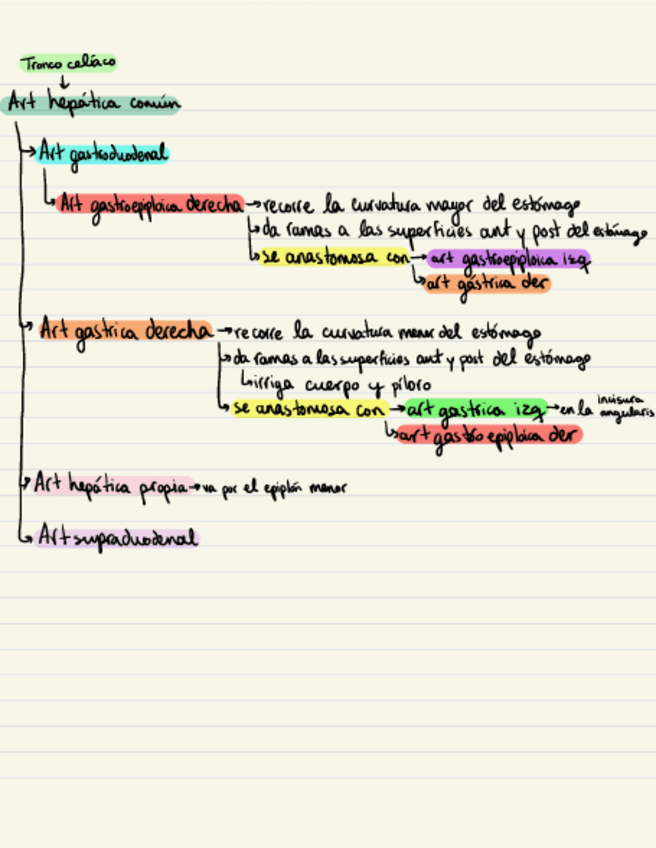 Tronco celíaco
Art hepática común
Art gastroduodenal
Art gastroepiploica derecha → recorre la curvatura mayor del estómago
da ramas a las superficies ant y post del estómago
se anastomosa con → art gastroepiploica izq
art gástrica der
Art gastrica derecha → recorre la curvatura menor del estómago
da ramas a las superficies ant y post del estómago
irriga cuerpo y píloro
se anastomosa con → art gastrica izq → en la incisura angularis
art gastroepiploica der
Art hepática propia → va por el epiplón menor
Art supraduodenal